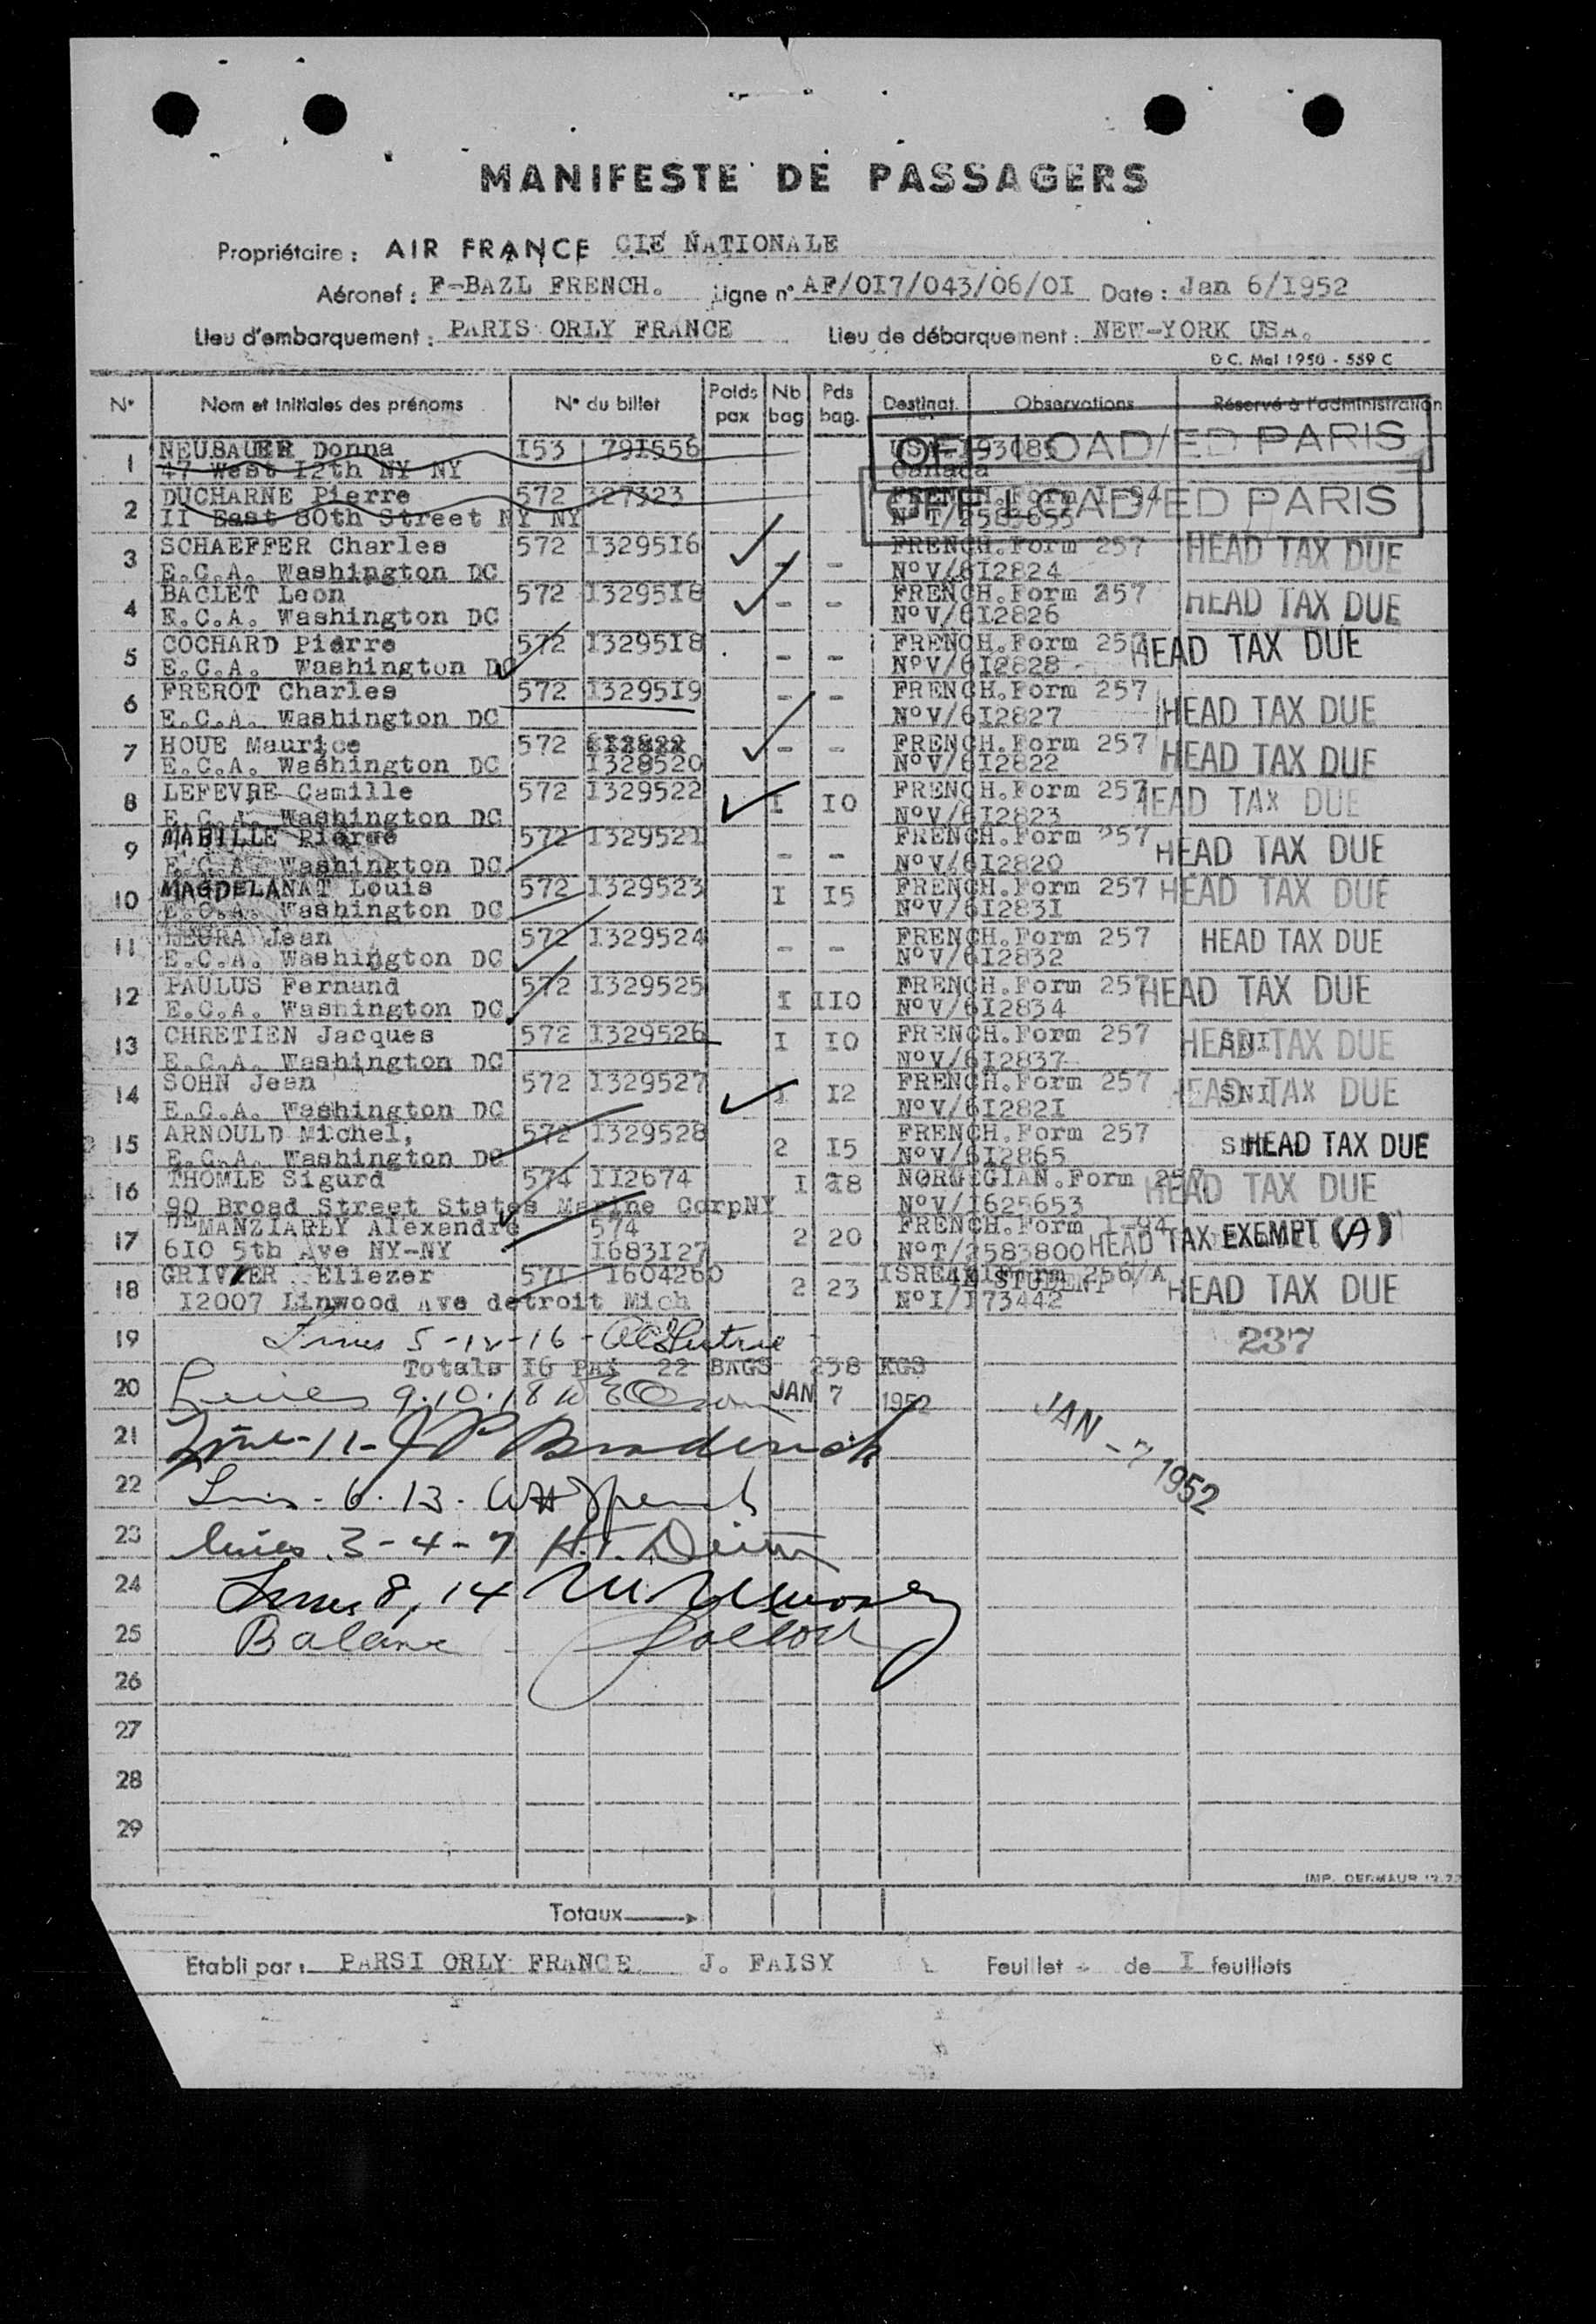 MANIFESTE DE PASSAGERS
Propriétaire : AIR FRANCE CIE NATIONALE
Aéronef : F-BAZL FRENCH. Ligne n° AF/OI7/043/06/OI Date : Jan 6/I952
Lieu d'embarquement : PARIS ORLY FRANCE Lieu de débarquement : NEW-YORK USA.
D.C. Mai 1950 - 559 C
N° Nom et Initiales des prénoms N° du billet Poids pax Nb bag Pds bag. Destinat. Observations Réservé à l'administration
1 NEUBAUER Donna I53 79I556 OFFLOAD/ED PARIS
47 West I2th NY NY Canada
2 DUCHARNE Pierre 572 327323 FRENCH. Form I-94 OFFLOAD/ED PARIS
II East 80th Street NY NY N°T/2583655
3 SCHAEFFER Charles 572 I3295I6 FRENCH.Form 257 HEAD TAX DUE
E.C.A. Washington DC - - N°V/6I2824
4 BACLET Leon 572 I3295I8 FRENCH.Form 257 HEAD TAX DUE
E.C.A. Washington DC - - N°V/6I2826
5 COCHARD Pierre 572 I3295I8 FRENCH.Form 257 HEAD TAX DUE
E.C.A. Washington DC - - N°V/6I2828
6 FREROT Charles 572 I3295I9 - - FRENCH.Form 257 HEAD TAX DUE
E.C.A. Washington DC N°V/6I2827
7 HOUE Maurice 572 - - FRENCH.Form 257 HEAD TAX DUE
E.C.A. Washington DC I328520 N°V/6I2822
8 LEFEVRE Camille 572 I329522 I IO FRENCH.Form 257 HEAD TAX DUE
E.C.A. Washington DC N°V/6I2823
9 MABILLE Pierre 572 I32952I FRENCH.Form 257 HEAD TAX DUE
E.C.A. Washington DC - - N°V/6I2820
10 MAGDELANAT Louis 572 I329523 I I5 FRENCH.Form 257 HEAD TAX DUE
E.C.A. Washington DC N°V/6I283I
11 Jean 572 I329524 FRENCH.Form 257 HEAD TAX DUE
E.C.A. Washington DC - - N°V/6I2832
12 PAULUS Fernand 572 I329525 I IIO FRENCH.Form 257 HEAD TAX DUE
E.C.A. Washington DC N°V/6I2834
13 CHRETIEN Jacques 572 I329526 I IO FRENCH.Form 257 SNI HEAD TAX DUE
E.C.A. Washington DC N°V/6I2837
14 SOHN Jean 572 I329527 I I2 FRENCH.Form 257 SNI HEAD TAX DUE
E.C.A. Washington DC N°V/6I282I
15 ARNOULD Michel, 572 I329528 2 I5 FRENCH.Form 257 HEAD TAX DUE
E.C.A. Washington DC N°V/6I2865
16 THOMLE Sigurd 574 II2674 I I8 NORWEGIAN.Form 257 HEAD TAX DUE
90 Broad Street States Marine CorpNY N°V/I625653
17 DE MANZIARLY Alexandre 574 2 20 FRENCH.Form I-94 HEAD TAX EXEMPT (A)
6IO 5th Ave NY-NY I683I27 N°T/2583800
18 GRIVZER Eliezer 57I I604260 2 23 Form 256/A STUDENT HEAD TAX DUE
I2007 Linwood Ave detroit Mich N°I/I73442
19 Lines 5-12-16 - 237
Totals I6 PAX 22 BAGS 238 KGS
20 9.10.18 JAN 7 1952
21 Line-11- J P Broderick JAN -7 1952
22 Lines - 6.13.
23 lines 3-4-7 H.T.
24 Lines 8, 14
25 Balance
26
27
28
29
IMP. DEFMAUR
Totaux
Etabli par : PARSI ORLY FRANCE J. FAISY Feuillet de I feuillets